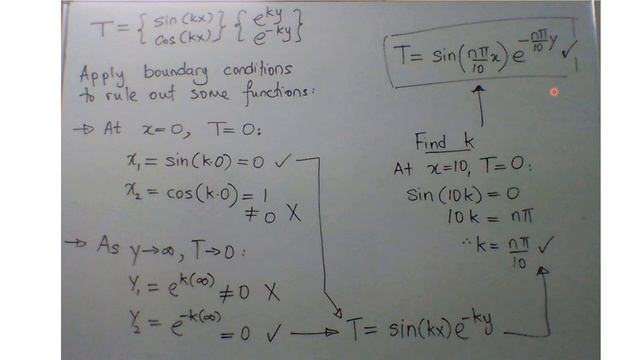 T = { sin(kx) cos(kx) } { e^ky e^-ky }
Apply boundary conditions
to rule out some functions:
→ At x=0, T=0:
x₁ = sin(k·0) = 0 ✓
x₂ = cos(k·0) = 1
≠ 0 X
→ As y→∞, T→0:
Y₁ = e^k(∞) ≠ 0 X
Y₂ = e^-k(∞) = 0 ✓ → T = sin(kx)e^-ky
Find k
At x=10, T=0:
sin(10k) = 0
10k = nπ
∴ k = nπ/10 ✓
T = sin(nπ/10 x) e^-nπ/10 y ✓